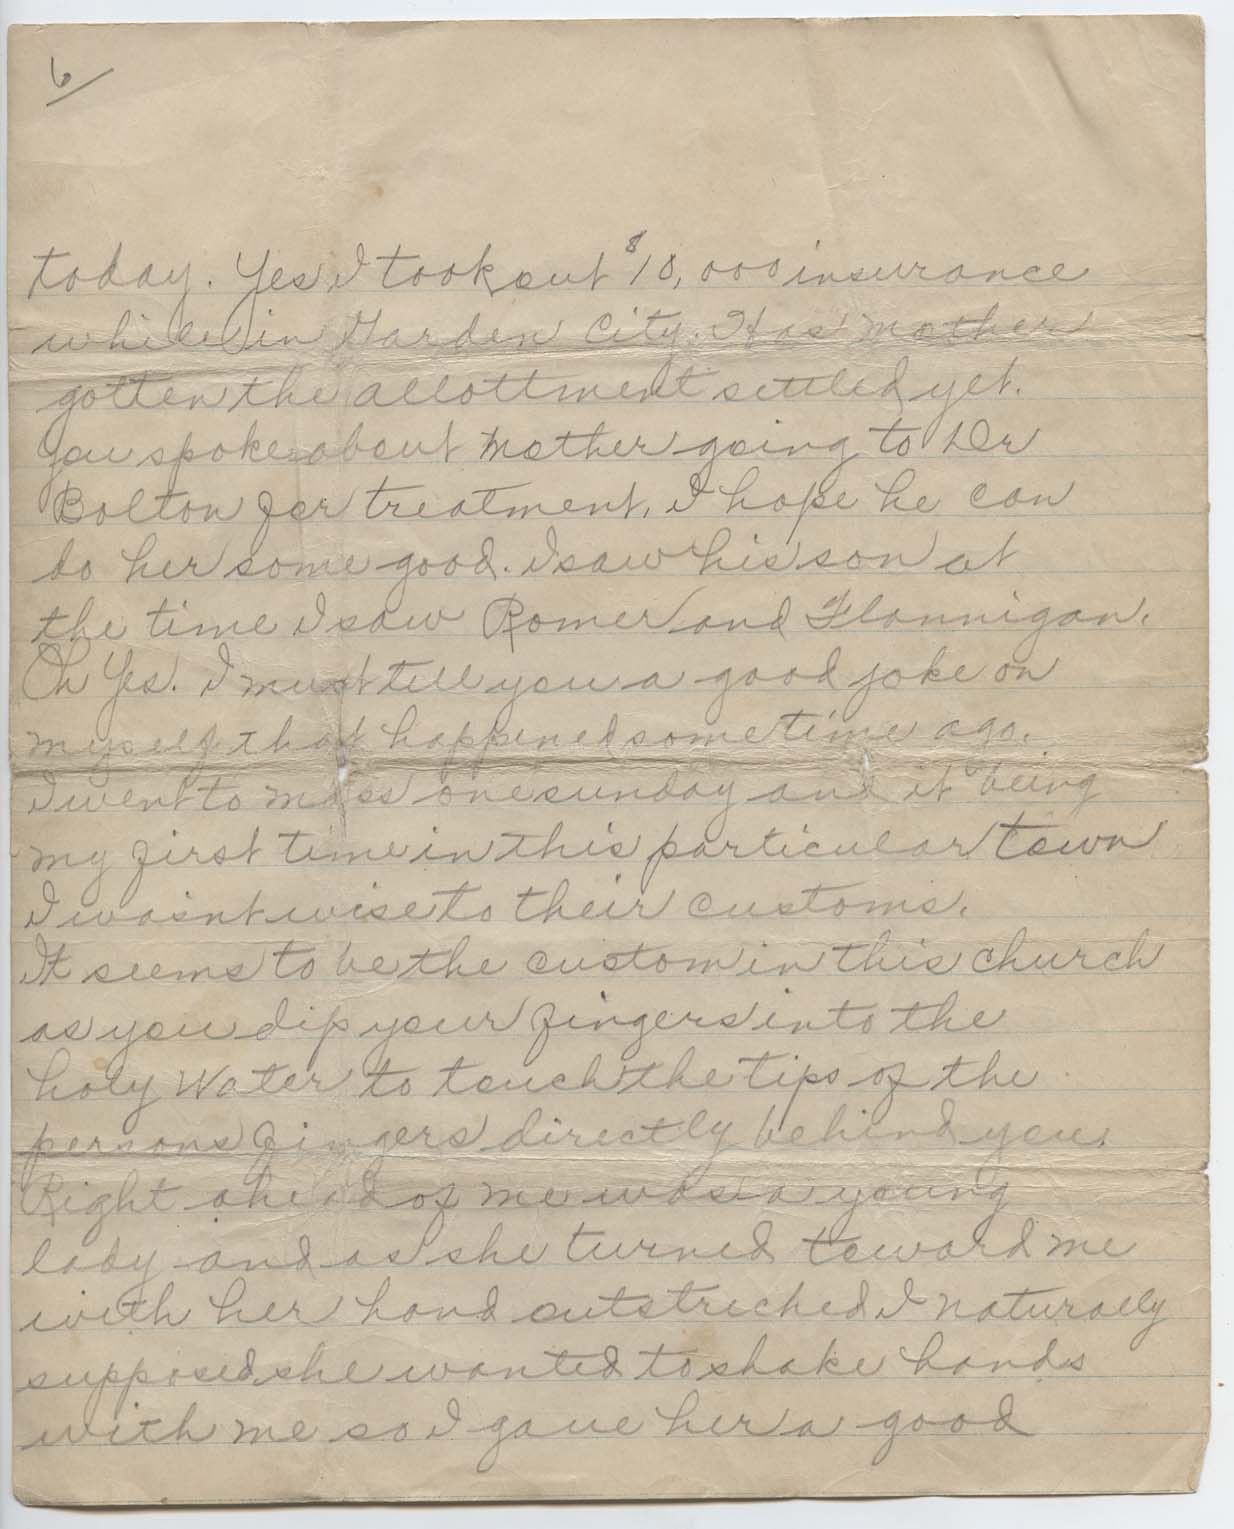 6/
today. Yes I took out $10,000 insurance
while in Garden City. Has mother
gotten the allottment settled yet.
You spoke about mother going to Dr
Bolton for treatment, I hope he can
do her some good. I saw his son at
the time I saw Romer and Flannigan.
Oh Yes. I must tell you a good joke on
myself that happened sometime ago.
I went to mass one sunday and it being
my first time in this particular town
I wasnt wise to their customs.
It seems to be the custom in this church
as you dip your fingers into the
holy Water to touch the tips of the
persons fingers directly behind you.
Right ahead of me was a young
lady and as she turned toward me
with her hand outstreched I naturally
supposed she wanted to shake hands
with me so I gave her a good